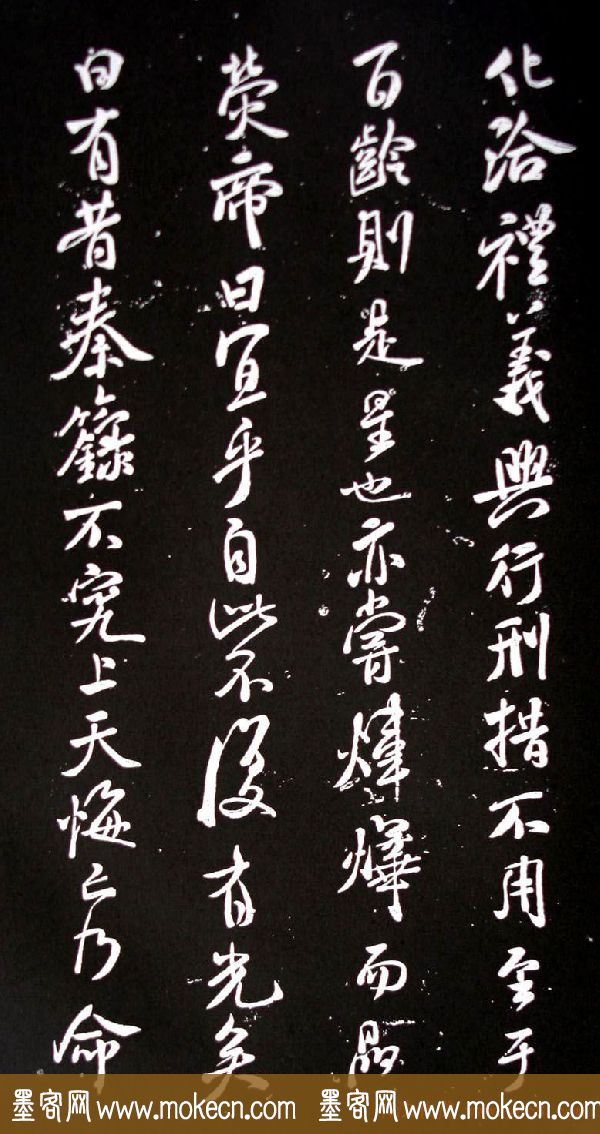 化洽禮義興行刑措不用至于
百齡則是星也亦嘗煒燁而晶
熒帝曰宜乎自此不復有光矣
曰有昔秦籙不究上天悔亡乃命
墨客网 www.mokecn.com 墨客网 www.mokecn.com